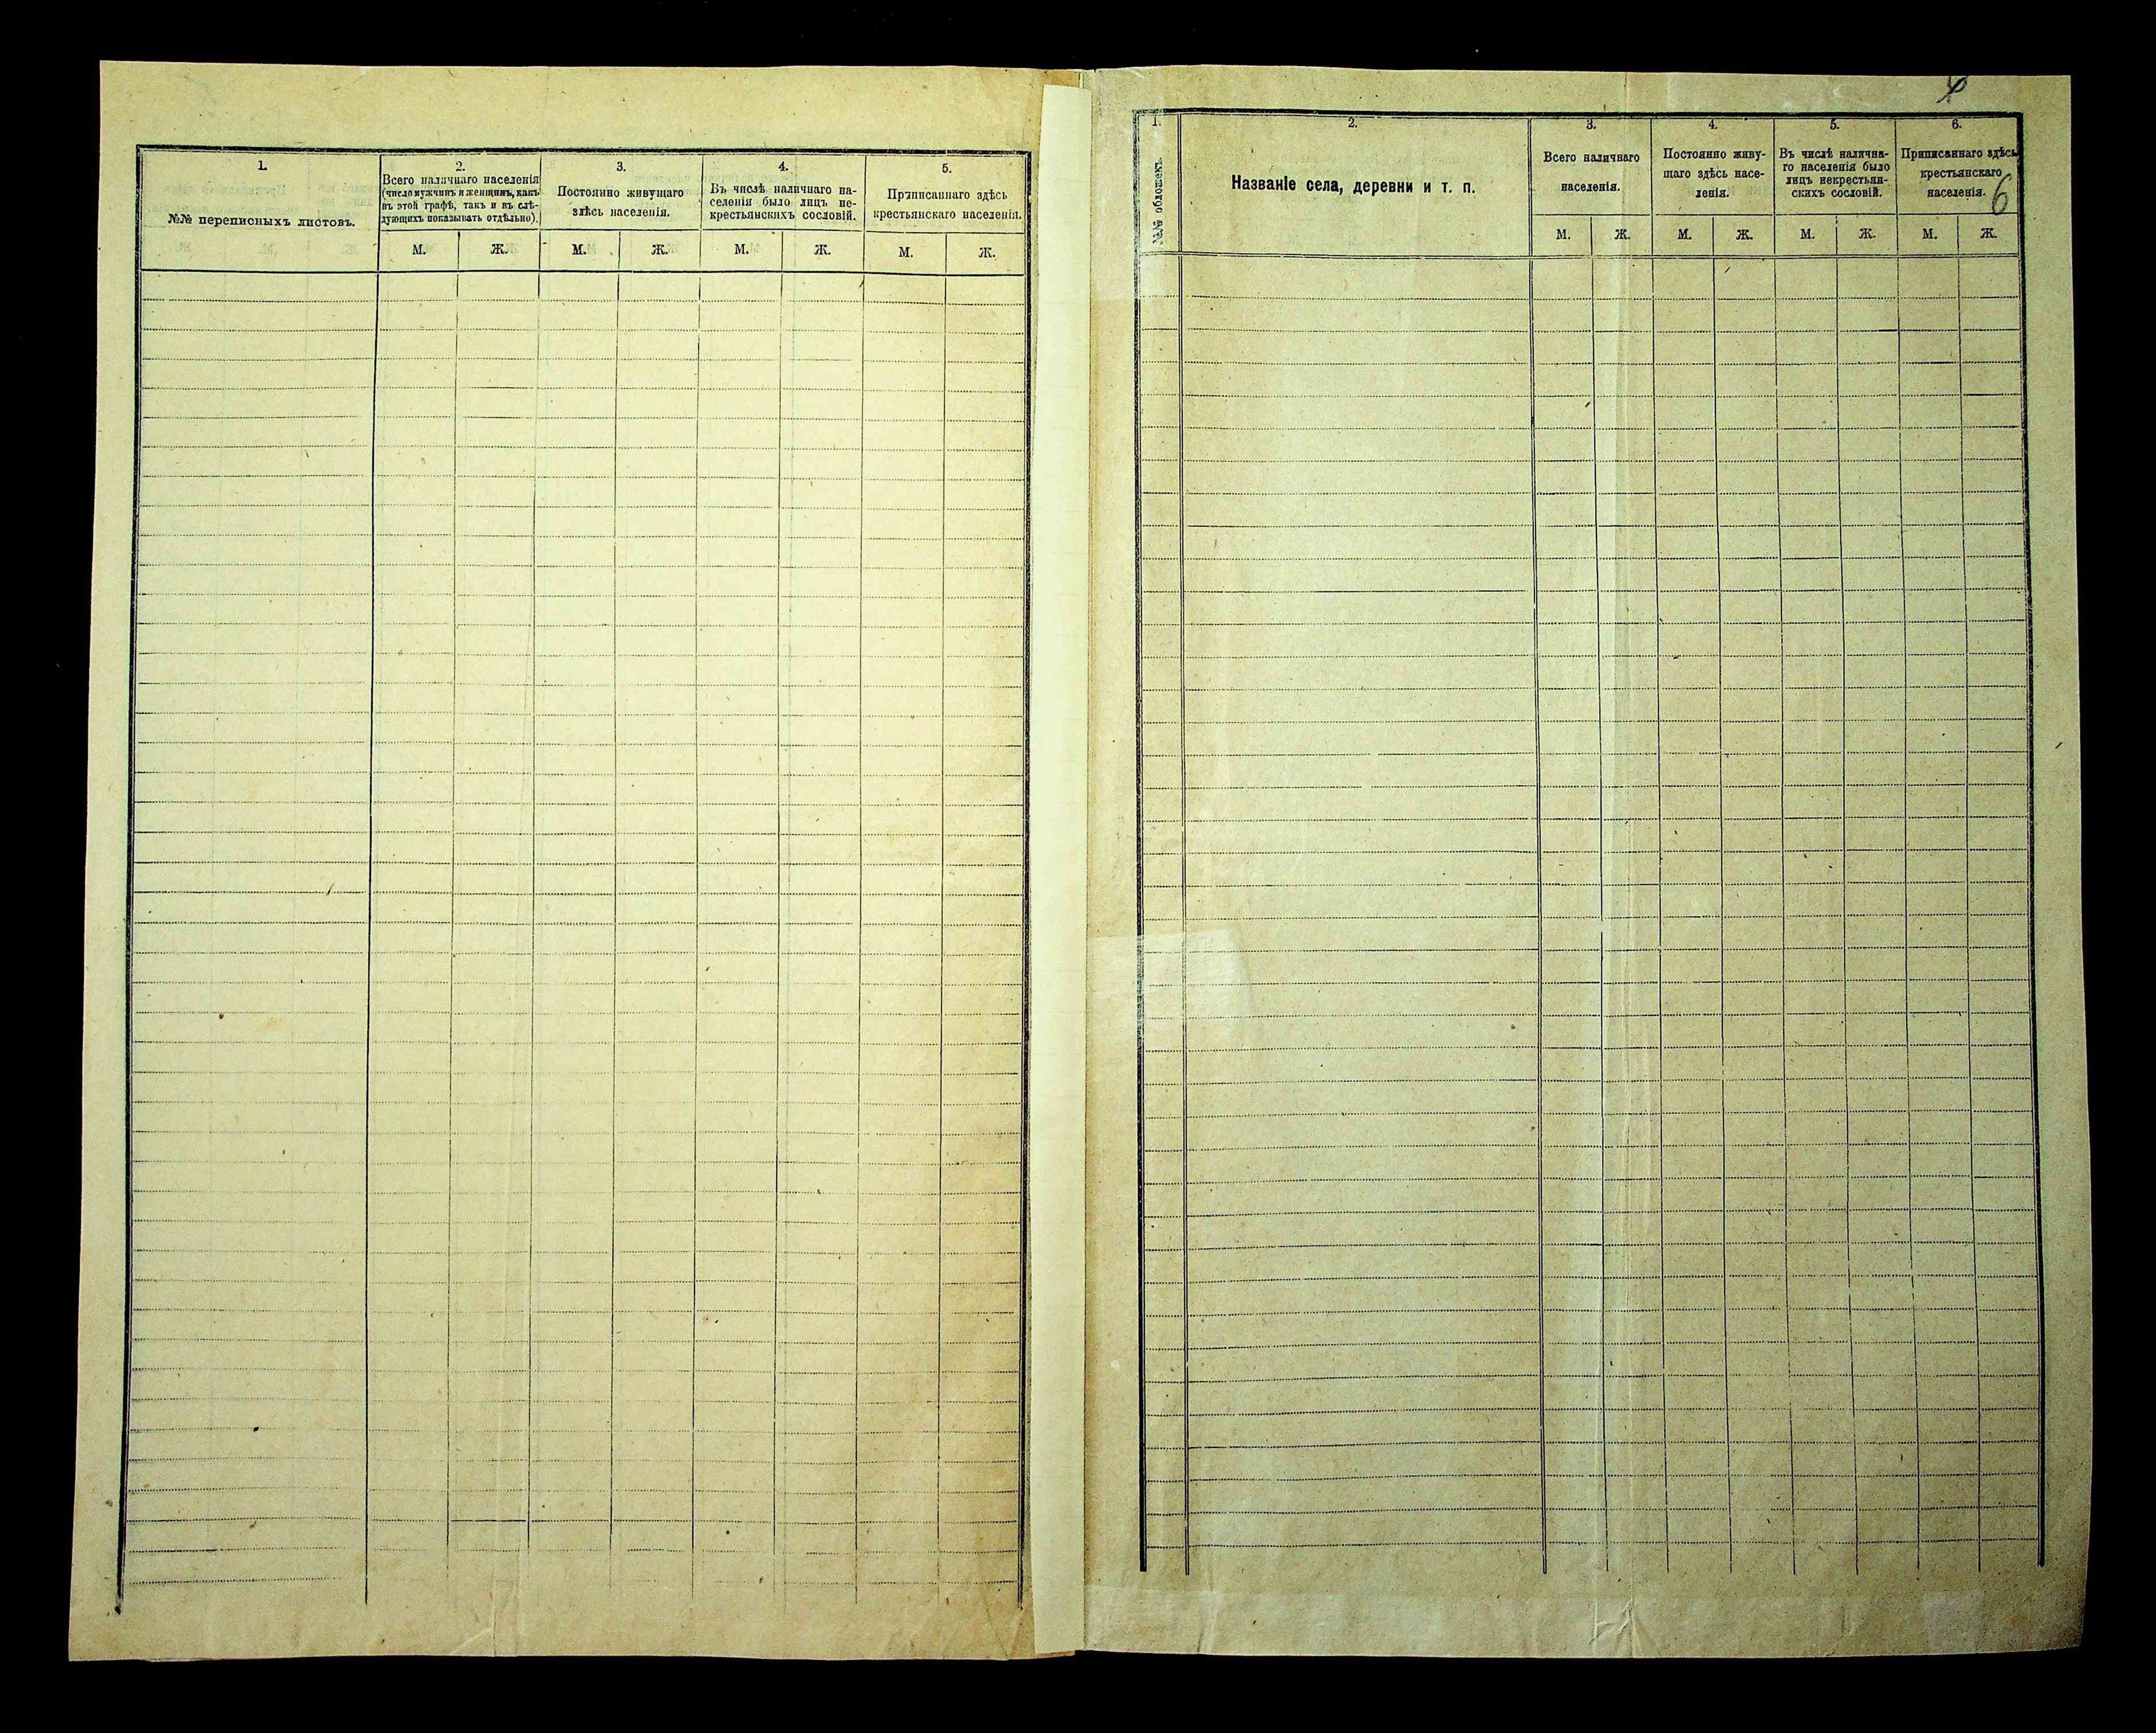 1.
№№ переписныхъ листовъ.
2.
Всего наличнаго населенія
(число мужчинъ и женщинъ, какъ
въ этой графѣ, такъ и въ слѣ-
дующихъ показывать отдѣльно).
М. Ж.
3.
Постоянно живущаго
здѣсь населенія.
М. Ж.
4.
Въ числѣ наличнаго на-
селенія было лицъ не-
крестьянскихъ сословій.
М. Ж.
5.
Приписаннаго здѣсь
крестьянскаго населенія.
М. Ж.
1.
№№ обложекъ.
2.
Названіе села, деревни и т. п.
3.
Всего наличнаго
населенія.
М. Ж.
4.
Постоянно живу-
щаго здѣсь насе-
ленія.
М. Ж.
5.
Въ числѣ налична-
го населенія было
лицъ некрестьян-
скихъ сословій.
М. Ж.
6.
Приписаннаго здѣсь
крестьянскаго
населенія.
6
М. Ж.